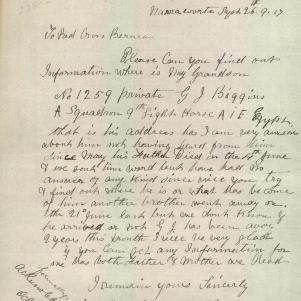 Sept 26.9.17
To Red Cross Bureau
Please Can you find out
Information where is My Grandson
No 1259 private G J Biggins
A Squadron 9th Light Horse A I F Egypt
that is his address has I am very
about him not having heard from him
since May his died in the 4th June
& we sent him word but have had no
answer of any kind since will you try
& find out where he is or what has become
of him another brother went away on
the 21st June last but we dont know if
he arrived or not G J has been away
2 years this month I will be very glad
if you can get any Information for
me has both Father & Mother are Dead
I remain yours Sincerly